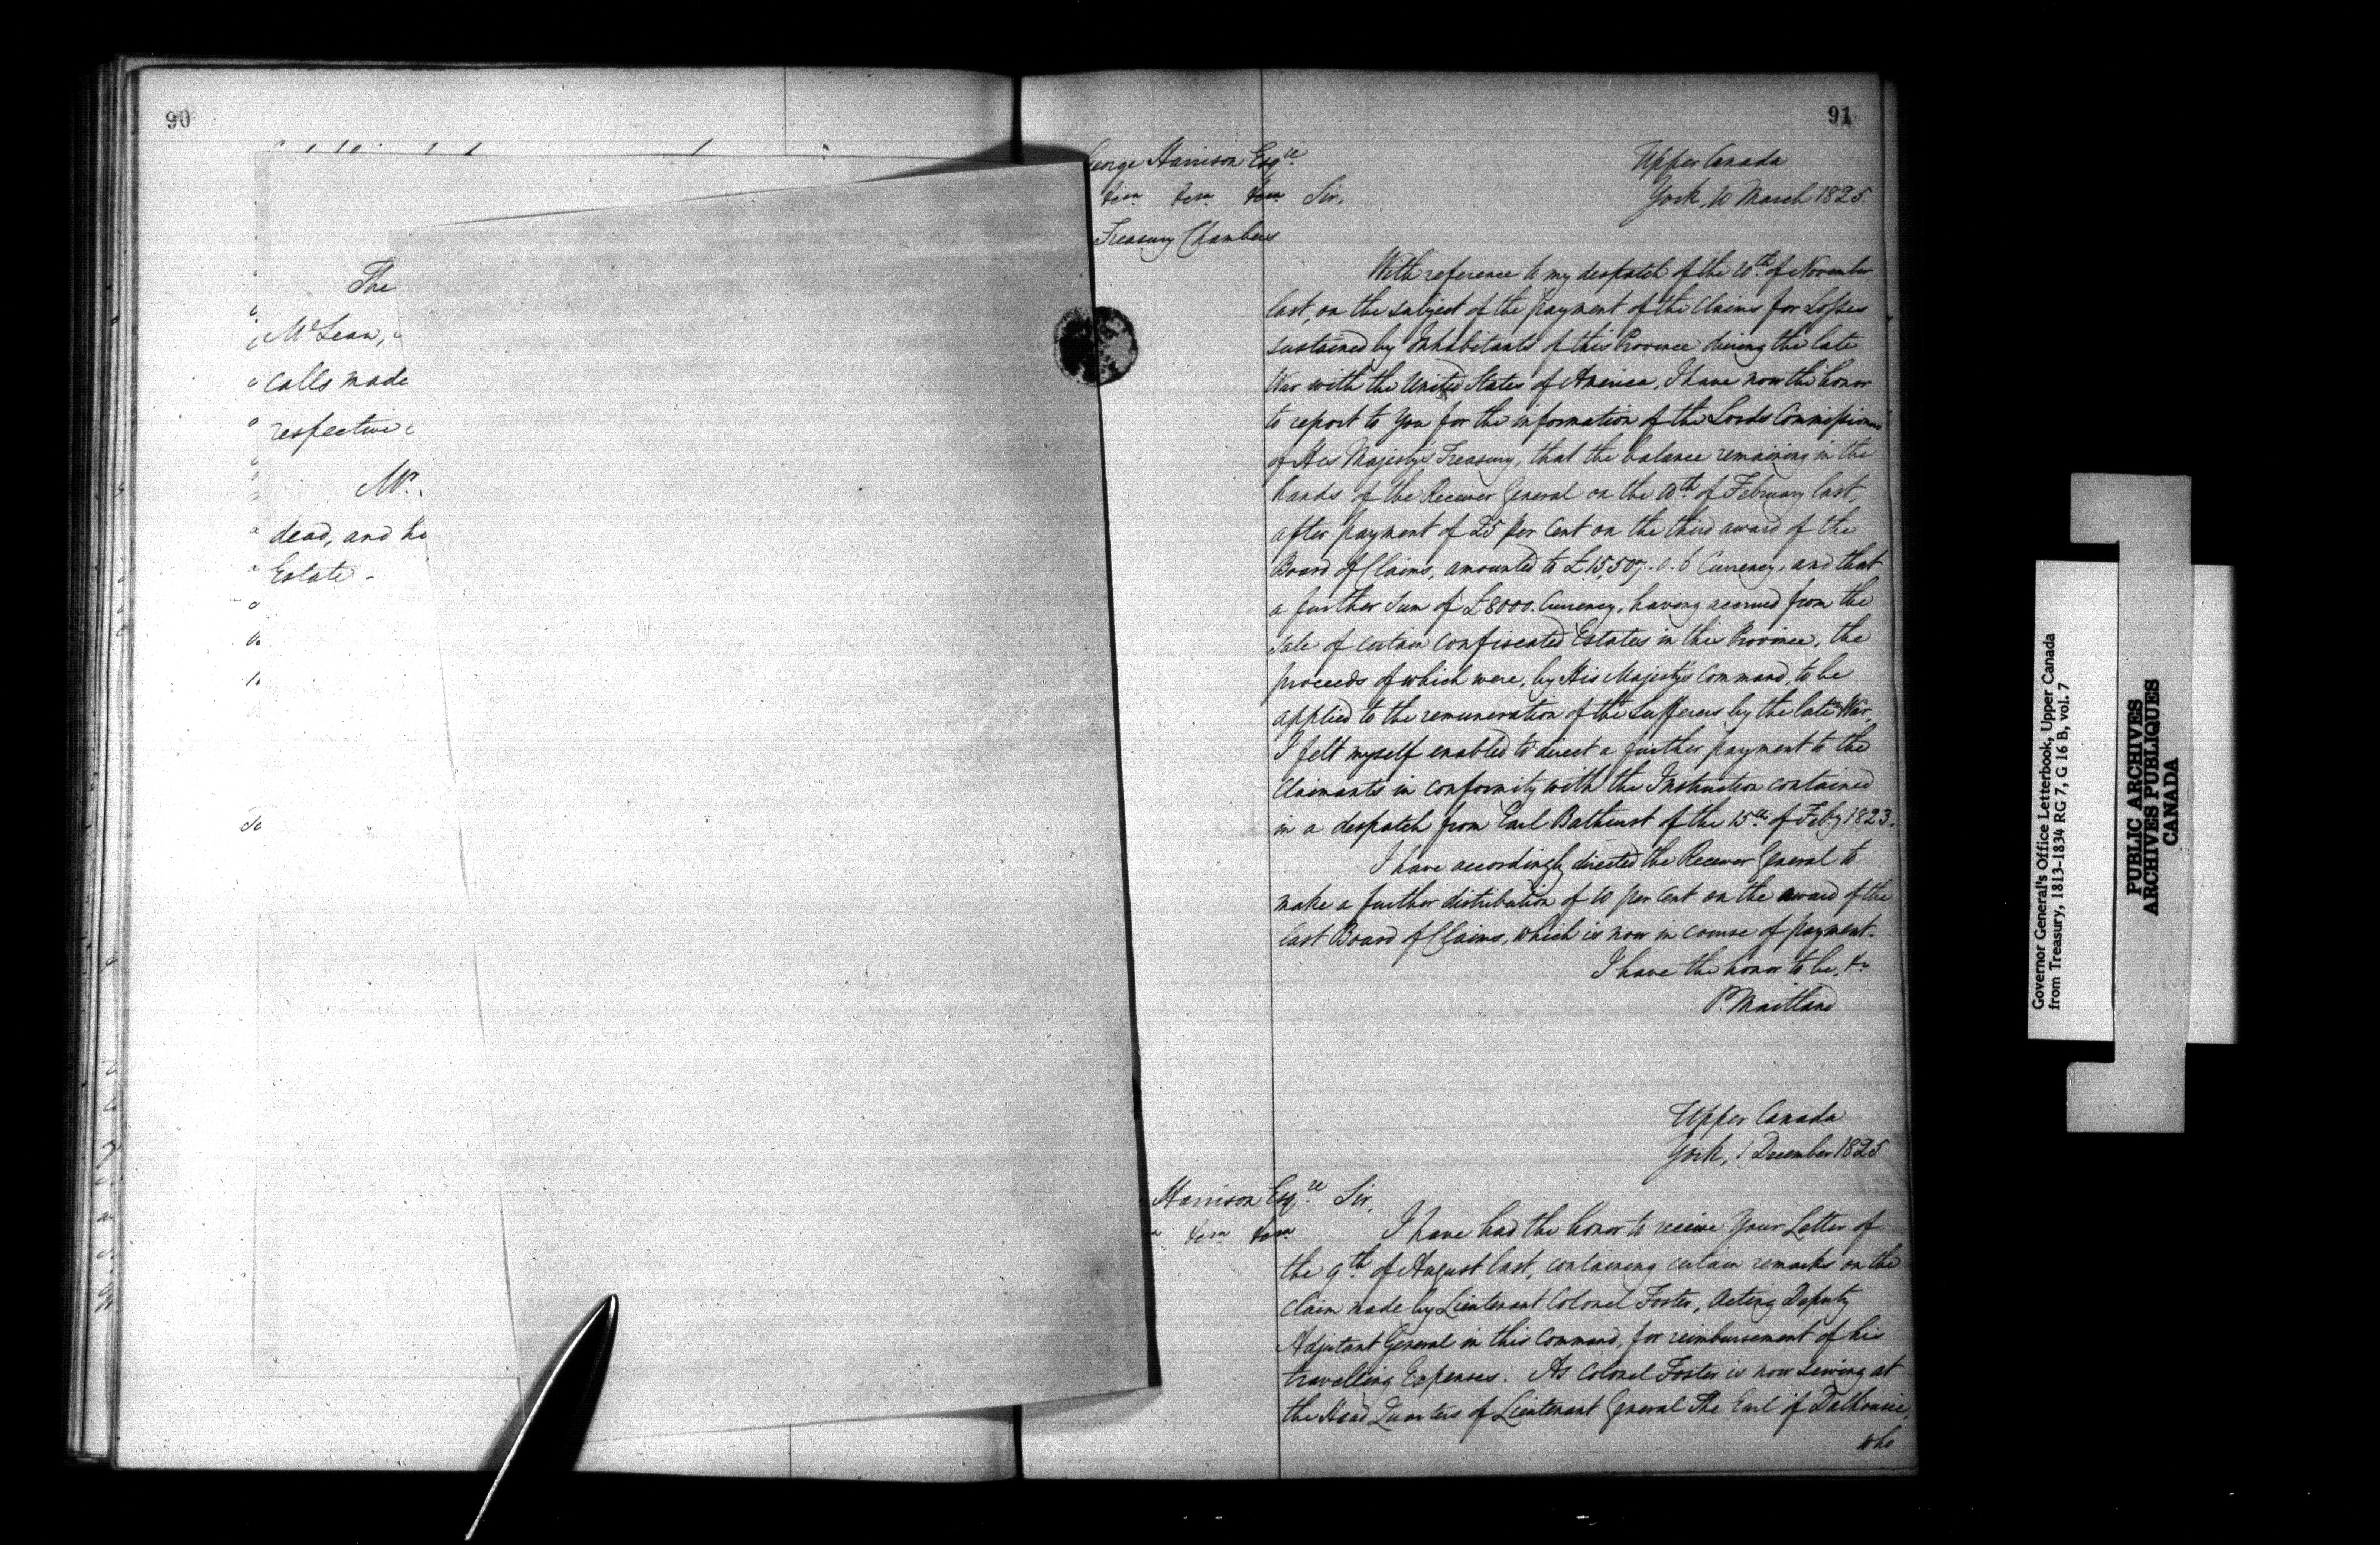 90
The
McLean,
calls made
respective
Mr.
dead, and
Estate -
91
George Harrison Esqre.
&ca &ca &ca Sir,
Treasury Chambers
Upper Canada
York, 10 March 1825
With reference to my despatch of the 20th of November
last, on the subject of the payment of the Claims for Losses
sustained by Inhabitants of this Province during the late
War with the United States of America, I have now the honor
to report to You for the information of the Lords Commissioners
of His Majesty's Treasury, that the balance remaining in the
hands of the Receiver General on the 10th of February last,
after payment of 25 per Cent on the third award of the
Board of Claims, amounted to £15,507. 0. 6 Currency, and that
a further Sum of £8000. Currency, having accrued from the
sale of certain confiscated Estates in this Province, the
proceeds of which were, by His Majesty's Command, to be
applied to the remuneration of the Sufferers by the late War,
I felt myself enabled to direct a further payment to the
Claimants in conformity with the Instruction contained
in a despatch from Earl Bathurst of the 15th of Feby 1823.
I have accordingly directed the Receiver General to
make a further distribution of 10 per Cent on the award of the
last Board of Claims, which is now in course of payment.
I have the honor to be, &c
P. Maitland
Upper Canada
York, 1 December 1825
Harrison Esqre. Sir,
&ca &ca I have had the honor to receive Your Letter of
the 9th of August last, containing certain remarks on the
claim made by Lieutenant Colonel Foster, Acting Deputy
Adjutant General in this Command, for reimbursement of his
travelling Expenses. As Colonel Foster is now serving at
the Head Quarters of Lieutenant General The Earl of Dalhousie,
who
Governor General's Office Letterbook, Upper Canada
from Treasury, 1813-1834 RG 7, G 16 B, vol. 7
PUBLIC ARCHIVES
ARCHIVES PUBLIQUES
CANADA